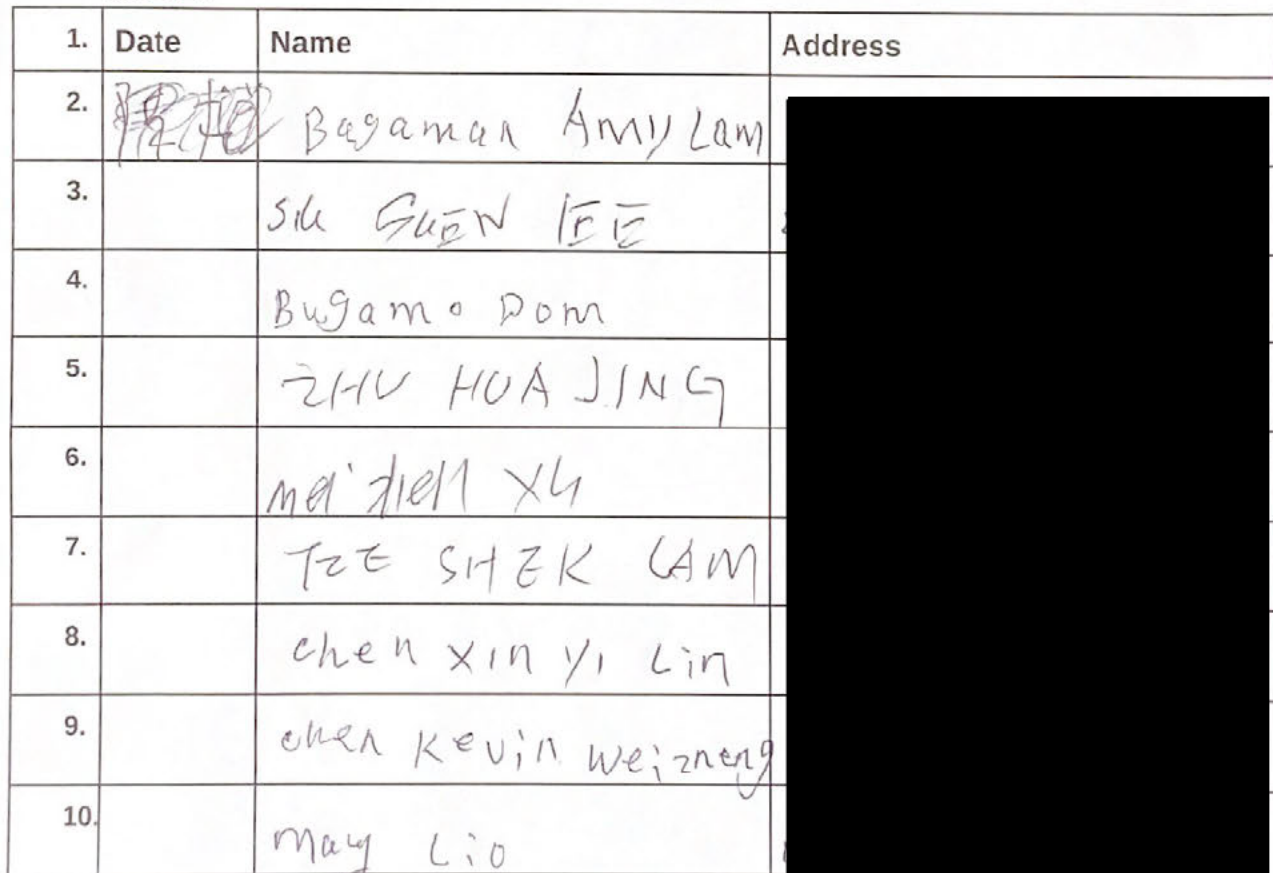 1. Date Name Address
2. Bagaman Amy Lam
3. Sik GUEN IEE
4. Bugamo Dom
5. ZHU HUA JING
6. mei Xu
7. TZE SHEK LAM
8. chen xin yi Lin
9. chen Kevin weizneng
10. may Lio